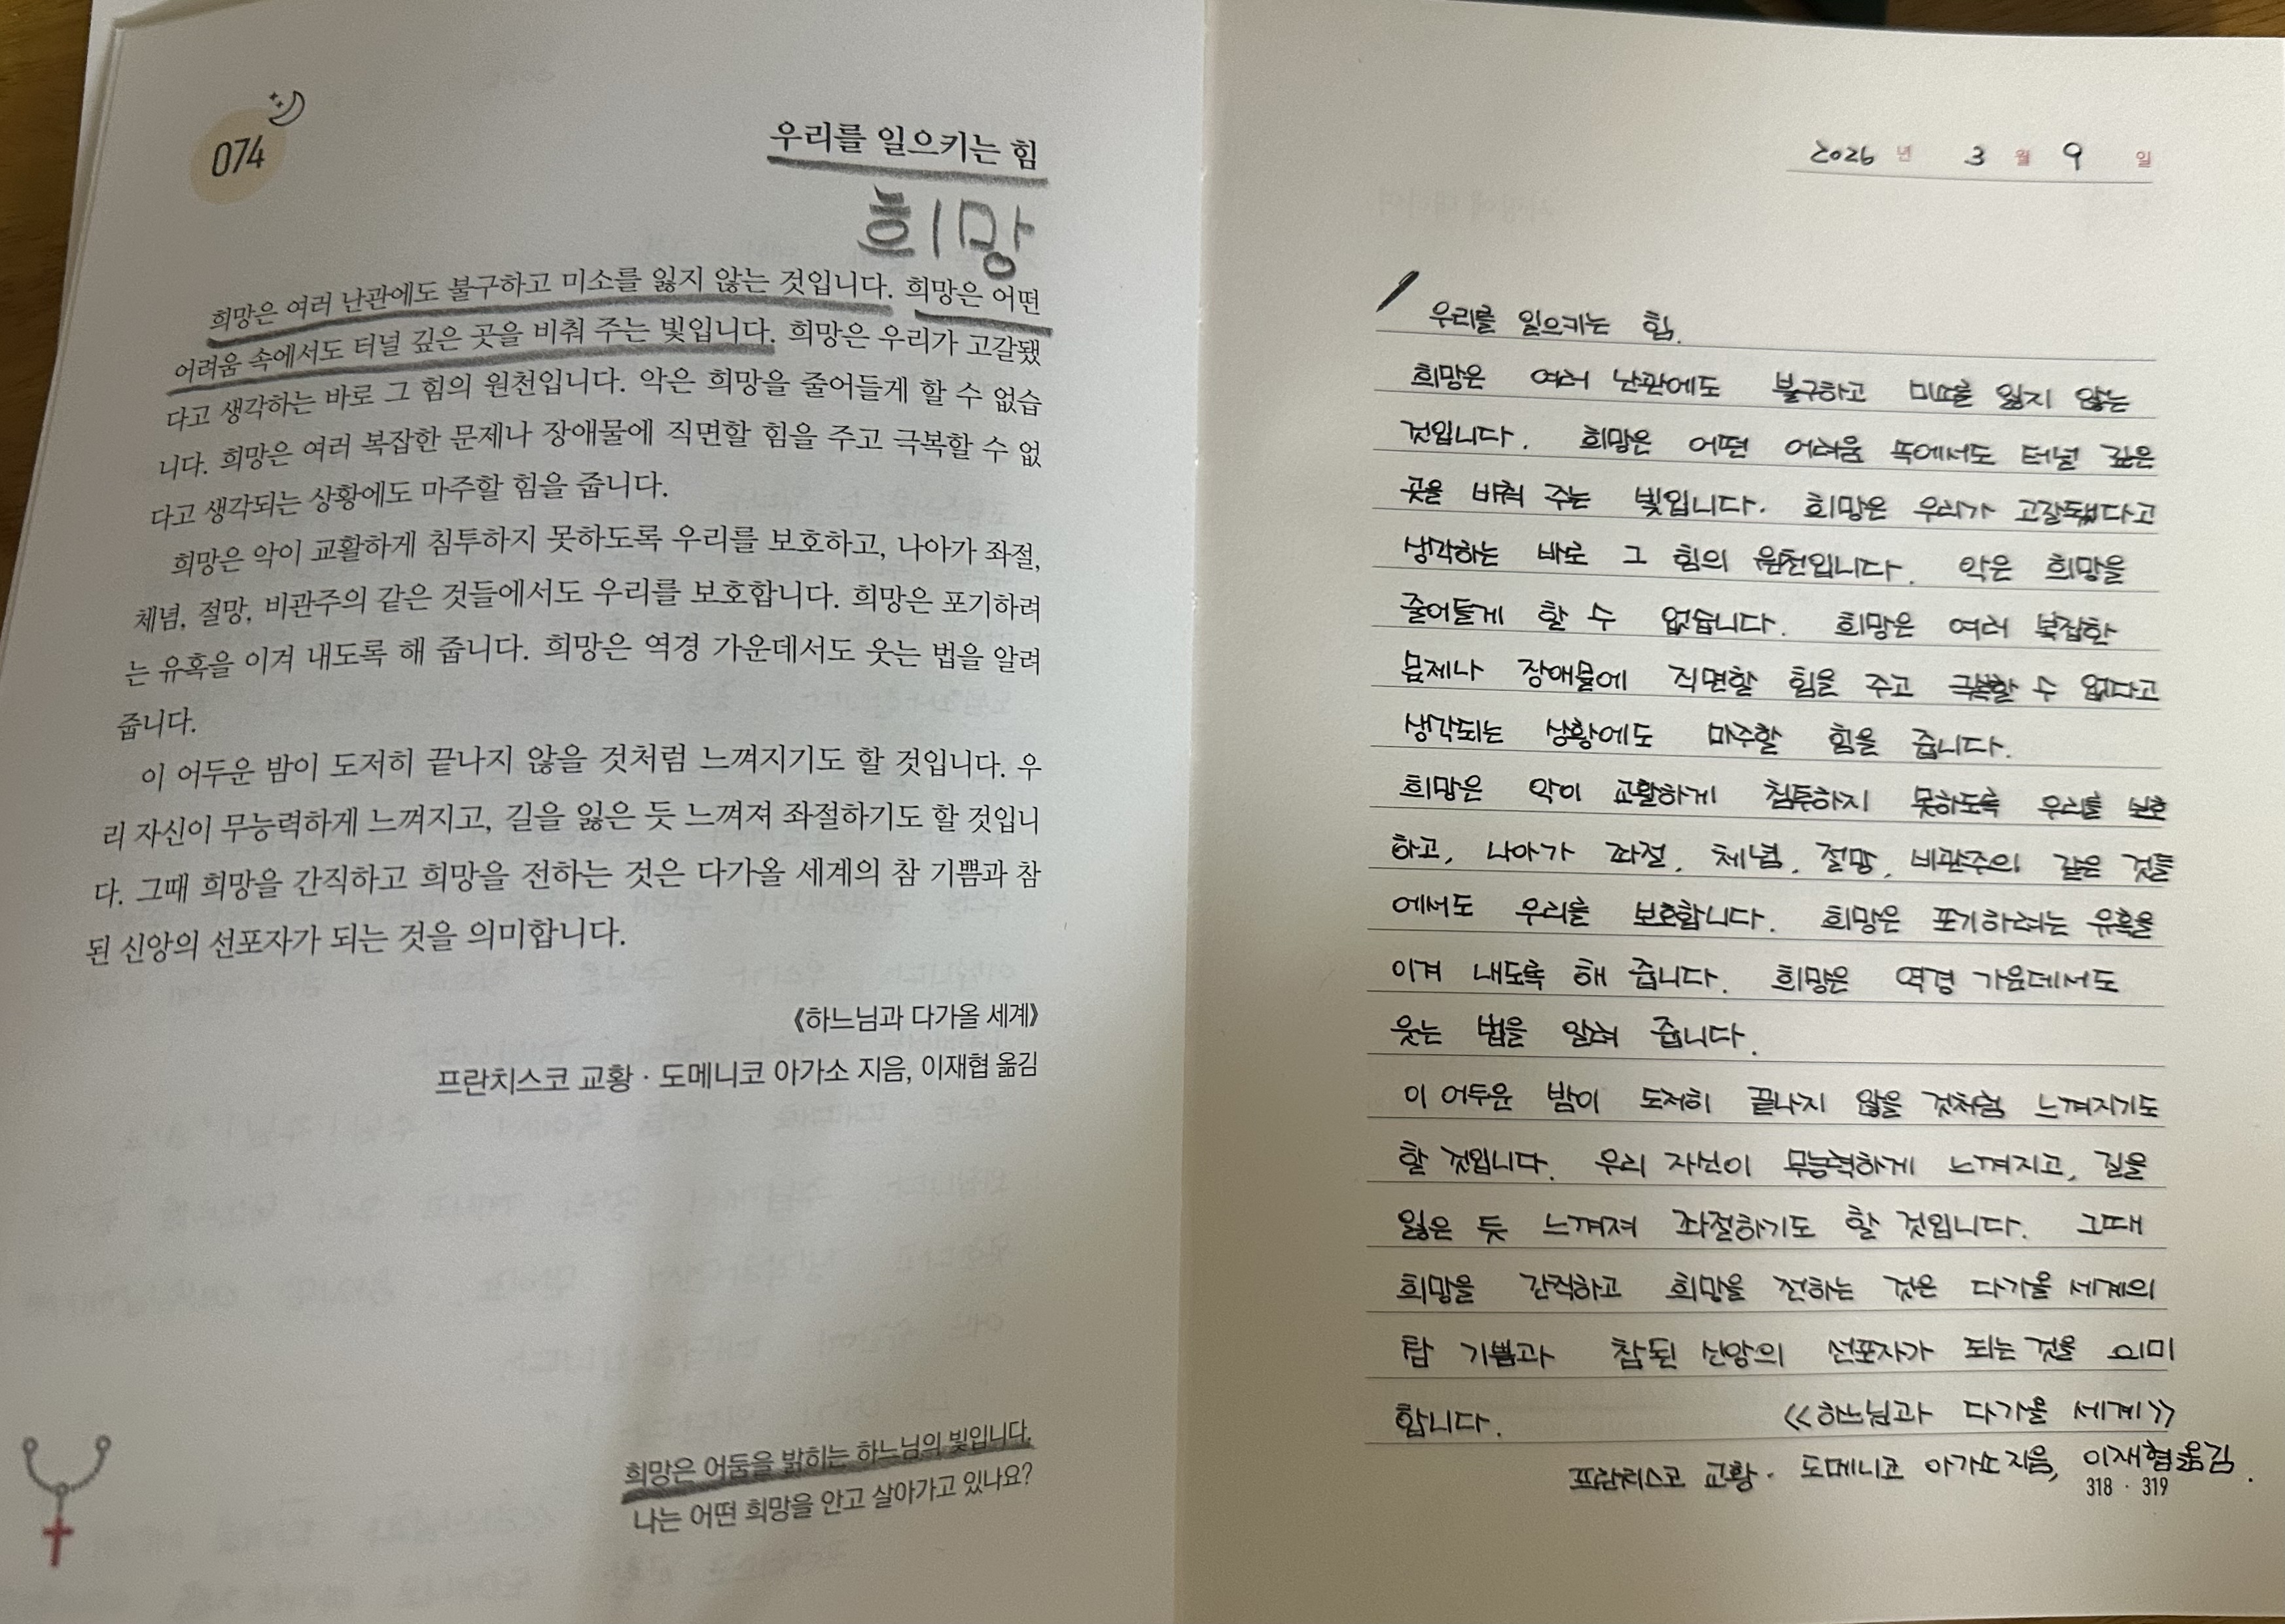 074
우리를 일으키는 힘
희망
희망은 여러 난관에도 불구하고 미소를 잃지 않는 것입니다. 희망은 어떤
어려움 속에서도 터널 깊은 곳을 비춰 주는 빛입니다. 희망은 우리가 고갈됐
다고 생각하는 바로 그 힘의 원천입니다. 악은 희망을 줄어들게 할 수 없습
니다. 희망은 여러 복잡한 문제나 장애물에 직면할 힘을 주고 극복할 수 없
다고 생각되는 상황에도 마주할 힘을 줍니다.
희망은 악이 교활하게 침투하지 못하도록 우리를 보호하고, 나아가 좌절,
체념, 절망, 비관주의 같은 것들에서도 우리를 보호합니다. 희망은 포기하려
는 유혹을 이겨 내도록 해 줍니다. 희망은 역경 가운데서도 웃는 법을 알려
줍니다.
이 어두운 밤이 도저히 끝나지 않을 것처럼 느껴지기도 할 것입니다. 우
리 자신이 무능력하게 느껴지고, 길을 잃은 듯 느껴져 좌절하기도 할 것입니
다. 그때 희망을 간직하고 희망을 전하는 것은 다가올 세계의 참 기쁨과 참
된 신앙의 선포자가 되는 것을 의미합니다.
《하느님과 다가올 세계》
프란치스코 교황 · 도메니코 아가소 지음, 이재협 옮김
희망은 어둠을 밝히는 하느님의 빛입니다.
나는 어떤 희망을 안고 살아가고 있나요?
2026 년 3 월 9 일
우리를 일으키는 힘.
희망은 여러 난관에도 불구하고 미소를 잃지 않는
것입니다. 희망은 어떤 어려움 속에서도 터널 깊은
곳을 비춰 주는 빛입니다. 희망은 우리가 고갈됐다고
생각하는 바로 그 힘의 원천입니다. 악은 희망을
줄어들게 할 수 없습니다. 희망은 여러 복잡한
문제나 장애물에 직면할 힘을 주고 극복할 수 없다고
생각되는 상황에도 마주할 힘을 줍니다.
희망은 악이 교활하게 침투하지 못하도록 우리를 보호
하고, 나아가 좌절, 체념, 절망, 비관주의 같은 것들
에서도 우리를 보호합니다. 희망은 포기하려는 유혹을
이겨 내도록 해 줍니다. 희망은 역경 가운데서도
웃는 법을 알려 줍니다.
이 어두운 밤이 도저히 끝나지 않을 것처럼 느껴지기도
할 것입니다. 우리 자신이 무능력하게 느껴지고, 길을
잃은 듯 느껴져 좌절하기도 할 것입니다. 그때
희망을 간직하고 희망을 전하는 것은 다가올 세계의
참 기쁨과 참된 신앙의 선포자가 되는 것을 의미
합니다. 《하느님과 다가올 세계》
프란치스코 교황 · 도메니코 아가소 지음, 이재협 옮김.
318 · 319